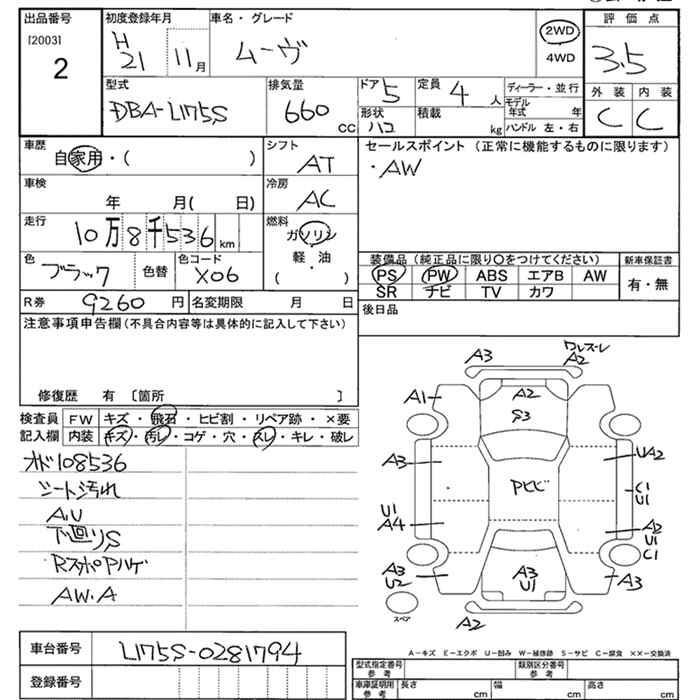 出品番号
[2003]
2
初度登録年月
H 21 11月
車名・グレード
ムーヴ
2WD
4WD
評価点
3.5
型式
DBA-L175S
排気量
660 cc
ドア 5
形状 ハコ
定員 4 人
積載 kg
ディーラー・並行
モデル年式 年
ハンドル 左・右
外装 内装
C C
車歴
自家用・( )
シフト
AT
セールスポイント (正常に機能するものに限ります)
・AW
車検
年 月( 日)
冷房
AC
走行
10万8千536km
燃料
ガソリン
軽・油
・
( )
色
ブラック
色替
色コード
X06
装備品(純正品に限り○をつけてください)
PS PW ABS エアB AW
SR ナビ TV カワ
新車保証書
有・無
R券 9260円
名変期限 月 日
後日品
注意事項申告欄(不具合内容等は具体的に記入して下さい)
修復歴 有 〔箇所 〕
検査員記入欄
FW キズ・飛石・ヒビ割・リペア跡・×要
内装 キズ・汚レ・コゲ・穴・スレ・キレ・破レ
オド108536
シート汚れ
AU
下廻りS
RステップPハゲ
AW.A
A3
ワレスレ
A2
A1
A2
S3
A3
UA2
Pヒビ
C1
U1
U1
A4
A2
U1
C1
A3
U2
A3
U1
A3
スペア
A2
A-キズ E-エクボ U-凹み W-補修跡 S-サビ C-腐食 ××-交換済
車台番号
L175S-0281794
登録番号
型式指定番号
参考
類別区分番号
参考
車庫証明用
参考
長さ cm 幅 cm 高さ cm